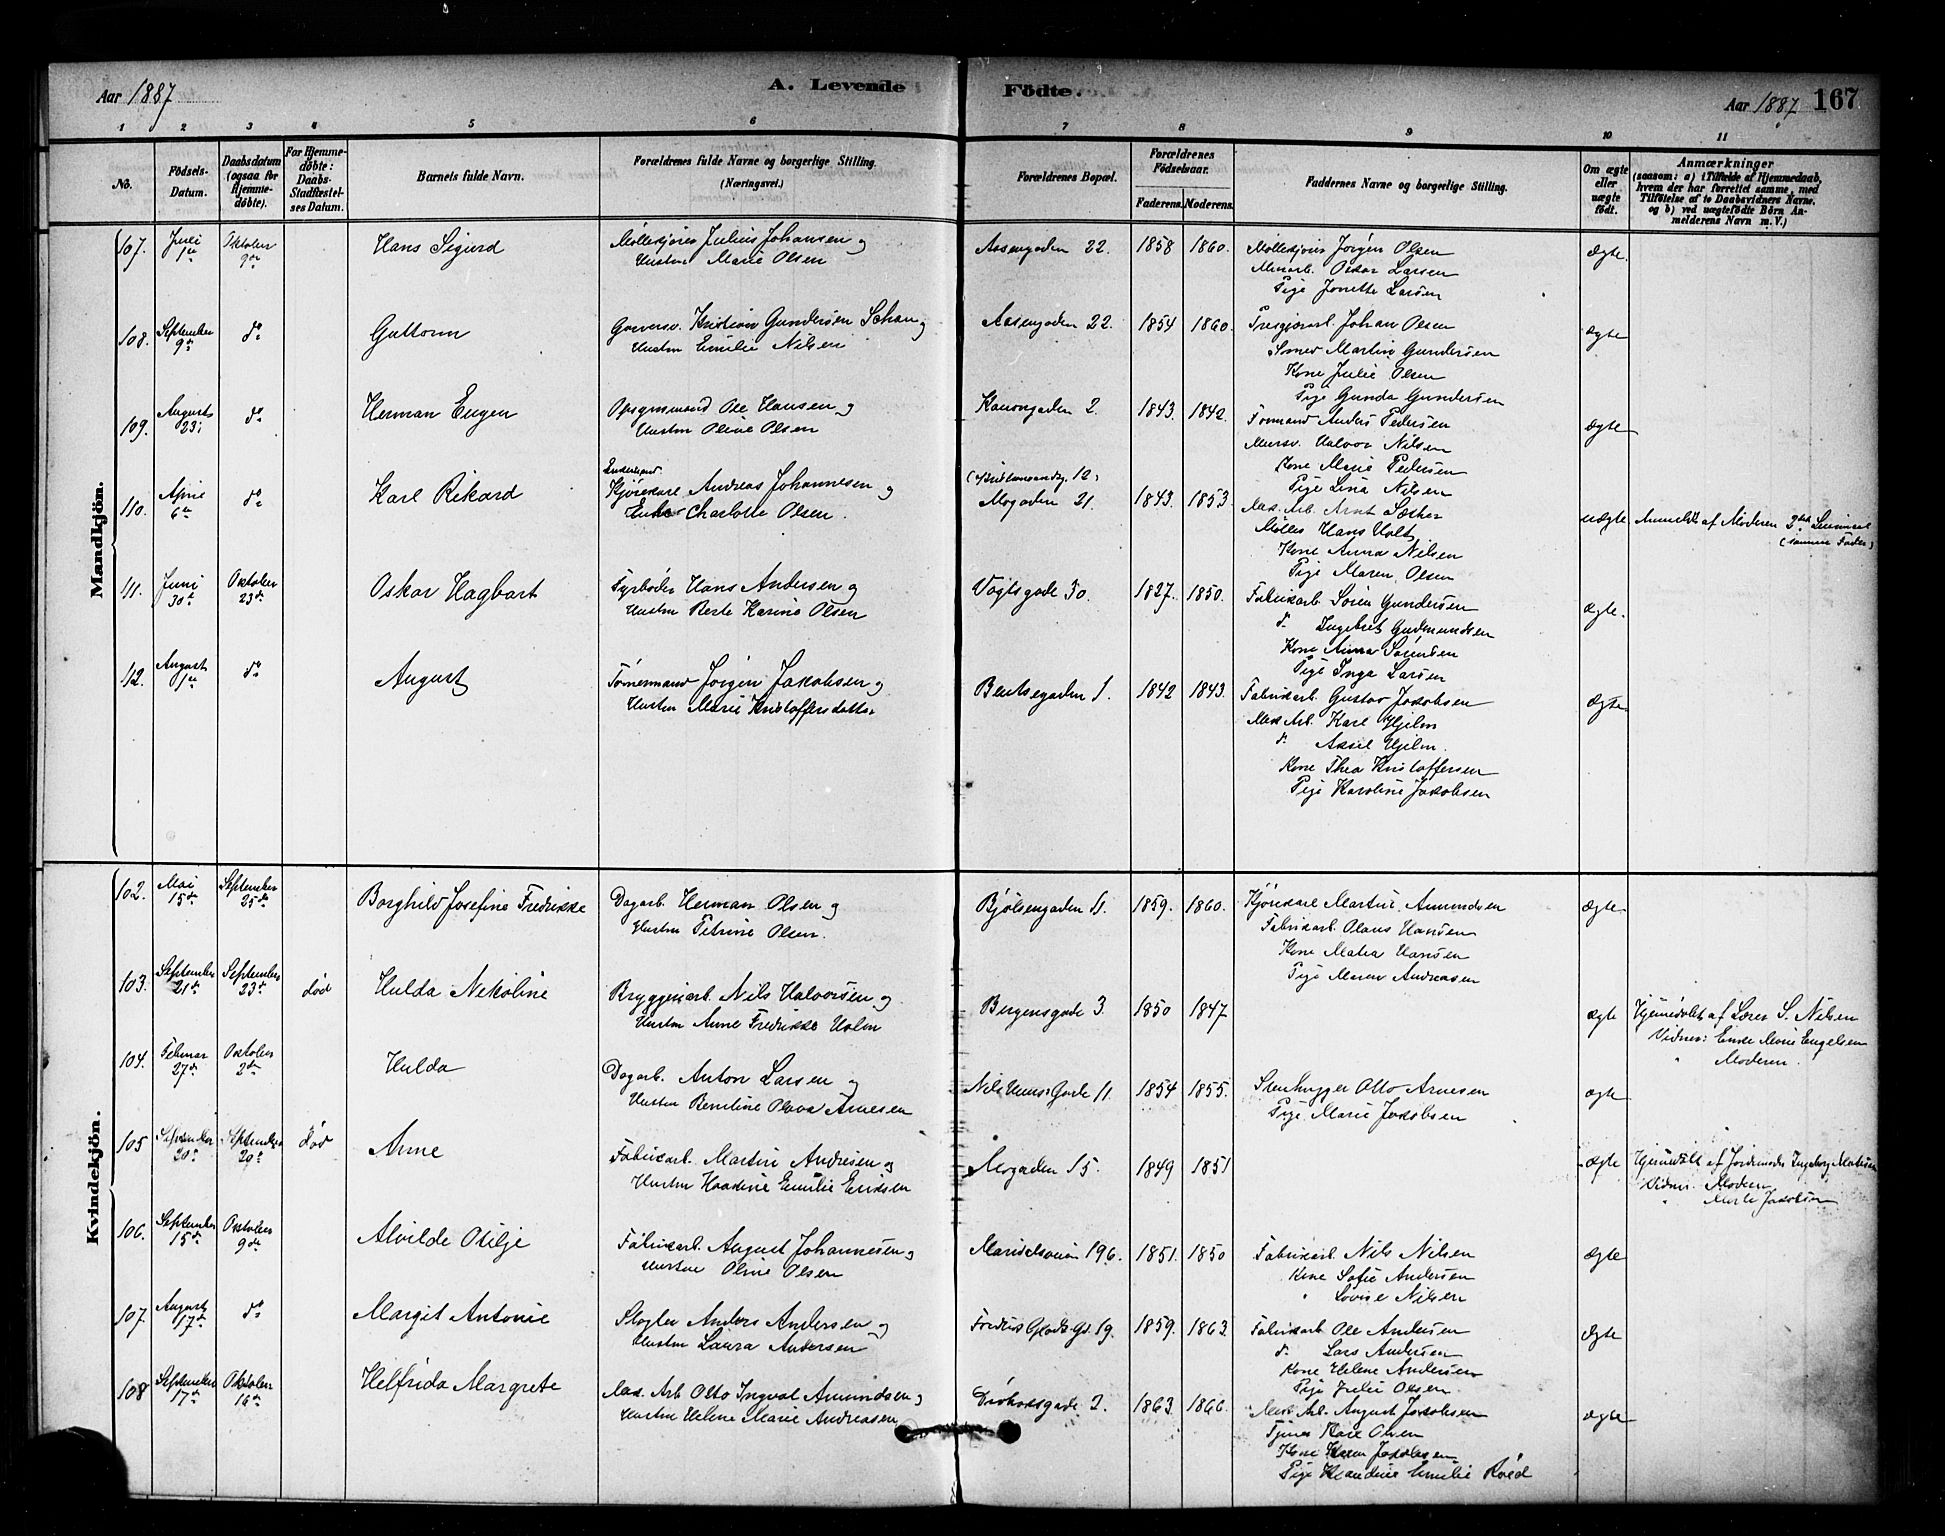 Aar 1887
A. Levende
Födte.
Aar 1887
167
1 2 3 4 5 6 7 8 9 10 11
No.
Födsels-
Datum.
Daabsdatum
(ogsaa for
Hjemme-
döbte).
For Hjemme-
döbte:
Daabs-
Stadfæstel-
ses Datum.
Barnets fulde Navn.
Forældrenes fulde Navne og borgerlige Stilling.
(Næringsvei.)
Forældrenes Bopæl.
Forældrenes
Födselsaar.
Faderens. Moderens.
Faddernes Navne og borgerlige Stilling.
Om ægte
eller
uægte
födt.
Anmærkninger
(saasom: a) i Tilfælde af Hjemmedaab,
hvem der har forrettet samme, med
Tilföielse af to Daabsvidners Navne,
og b) ved uægtefödte Börn An-
melderens Navn m. V.)
Mandkjön.
107. Juli 1ste Oktober 9de Hans Sigurd
Møllekjører Julius Johansen og
Hustru Marie Olsen
Aasengaden 22. 1858 1860.
Møllekjører Jørgen Olsen
Murarb. Oskar Larsen
Pige Jonette Larsen
ægte.
108. September 9de do Guttorm
Garversv. Kristian Gundersen Schau og
Hustru Emilie Nilsen
Aasengaden 22. 1854 1860.
Johan Olsen
Smed Martin Gundersen
Kone Julie Olsen
Pige Gunda Gundersen
ægte
109. August 23de do Herman Eugen
Opsynsmand Ole Hansen og
Hustru Oline Olsen
Kanongaden 2. 1843. 1842.
Formand Anders Pedersen
Mursv. Halvor Nilsen
Kone Marie Pedersen
Pige Lina Nilsen
ægte
110. April 6te do Karl Rikard
Enkemand
Kjørekarl Andreas Johannesen og
Enke Charlotte Olsen.
(Kristiansandsg. 12)
Mogaden 21. 1843. 1853.
Mask. Arb. Arnt Sæther
Møller Hans Holt
Kone Anna Nilsen
Pige Maren Olsen
uægte Anmeldt af Moderen 2det Leiermaal
(samme Fader)
111. Juni 30te Oktober 23de Oskar Hagbart
Fyrbøder Hans Andersen og
Hustru Berte Karine Olsen
Vogtsgade 30. 1827. 1850.
Fabrikarb. Søren Gundersen
do Ingebret Gudmundsen
Kone Anna Sørensen
Pige Inga Larsen
ægte.
112. August 1ste do August
Tømmermand Jørgen Jakobsen og
Hustru Marie Kristoffersdatter
Bentsegaden 1. 1842 1843.
Fabrikarb. Gustav Jakobsen
Mask. Arb. Karl Hjelm
do Aksel Hjelm.
Kone Thea Kristoffersen
Pige Karoline Jakobsen
ægte
Kvindekjön.
102. Mai 15de September 25de Borghild Josefine Fredrikke
Dagarb. Herman Olsen og
Hustru Petrine Olsen.
Bjølsengaden 11. 1859. 1860.
Kjørekarl Martin Amundsen
Fabrikarb. Olaus Hansen
Kone Matea Hansen
Pige Maren Andreasen
ægte
103. September 21de September 23de død Hulda Nikoline
Bryggeriarb. Nils Halvorsen og
Hustru Anne Fredrikke Holm
Bergensgade 3. 1850 1847.
ægte Hjemmedøbt af Lærer S. Nilsen
Vidner: Enke Marie Engelsen
" Moderen.
104. Februar 27de Oktober 2den Hulda
Dagarb. Anton Larsen og
Hustru Bentine Olava Arnesen
Nils Huus's Gade 11. 1854 1855.
Stenhugger Otto Arnesen
Pige Marie Jakobsen
ægte
105 September 20de September 29de død Anne
Fabrikarb. Martin Andresen og
Hustru Emilie Eriksen
Mogaden 15. 1849 1851
ægte Hjemmedøbt af Jordemoder Ingeborg
Vidner: Moderen
" Jakobsen
106. September 15de Oktober 9de Alvilde Otilje
Fabrikarb. August Johannesen og
Hustru Oline Olsen
Maridalsveien 196. 1851. 1850
Fabrikarb. Nils Nilsen
Kone Sofie Andersen
" Lovise Nilsen
ægte
107. August 17de do Margit Antonie
Slagter Anders Andersen og
Hustru Laura Andersen
Fredrik Glads Gd. 19. 1859. 1863
Fabrikarb. Ole Andersen
do Lars Andersen
Kone Helene Andersen
Pige Julie Olsen.
ægte
108 September 17de Oktober 16de Helfrida Margrete
Mask. Arb. Otto Ingval Amundsen og
Hustru Helene Marie Andreasen
2. 1863. 1866.
Mask. Arb. August Jakobsen
Tjener Karl Olsen
Kone Karen Jakobsen
Pige Klaudine Emilie
ægte